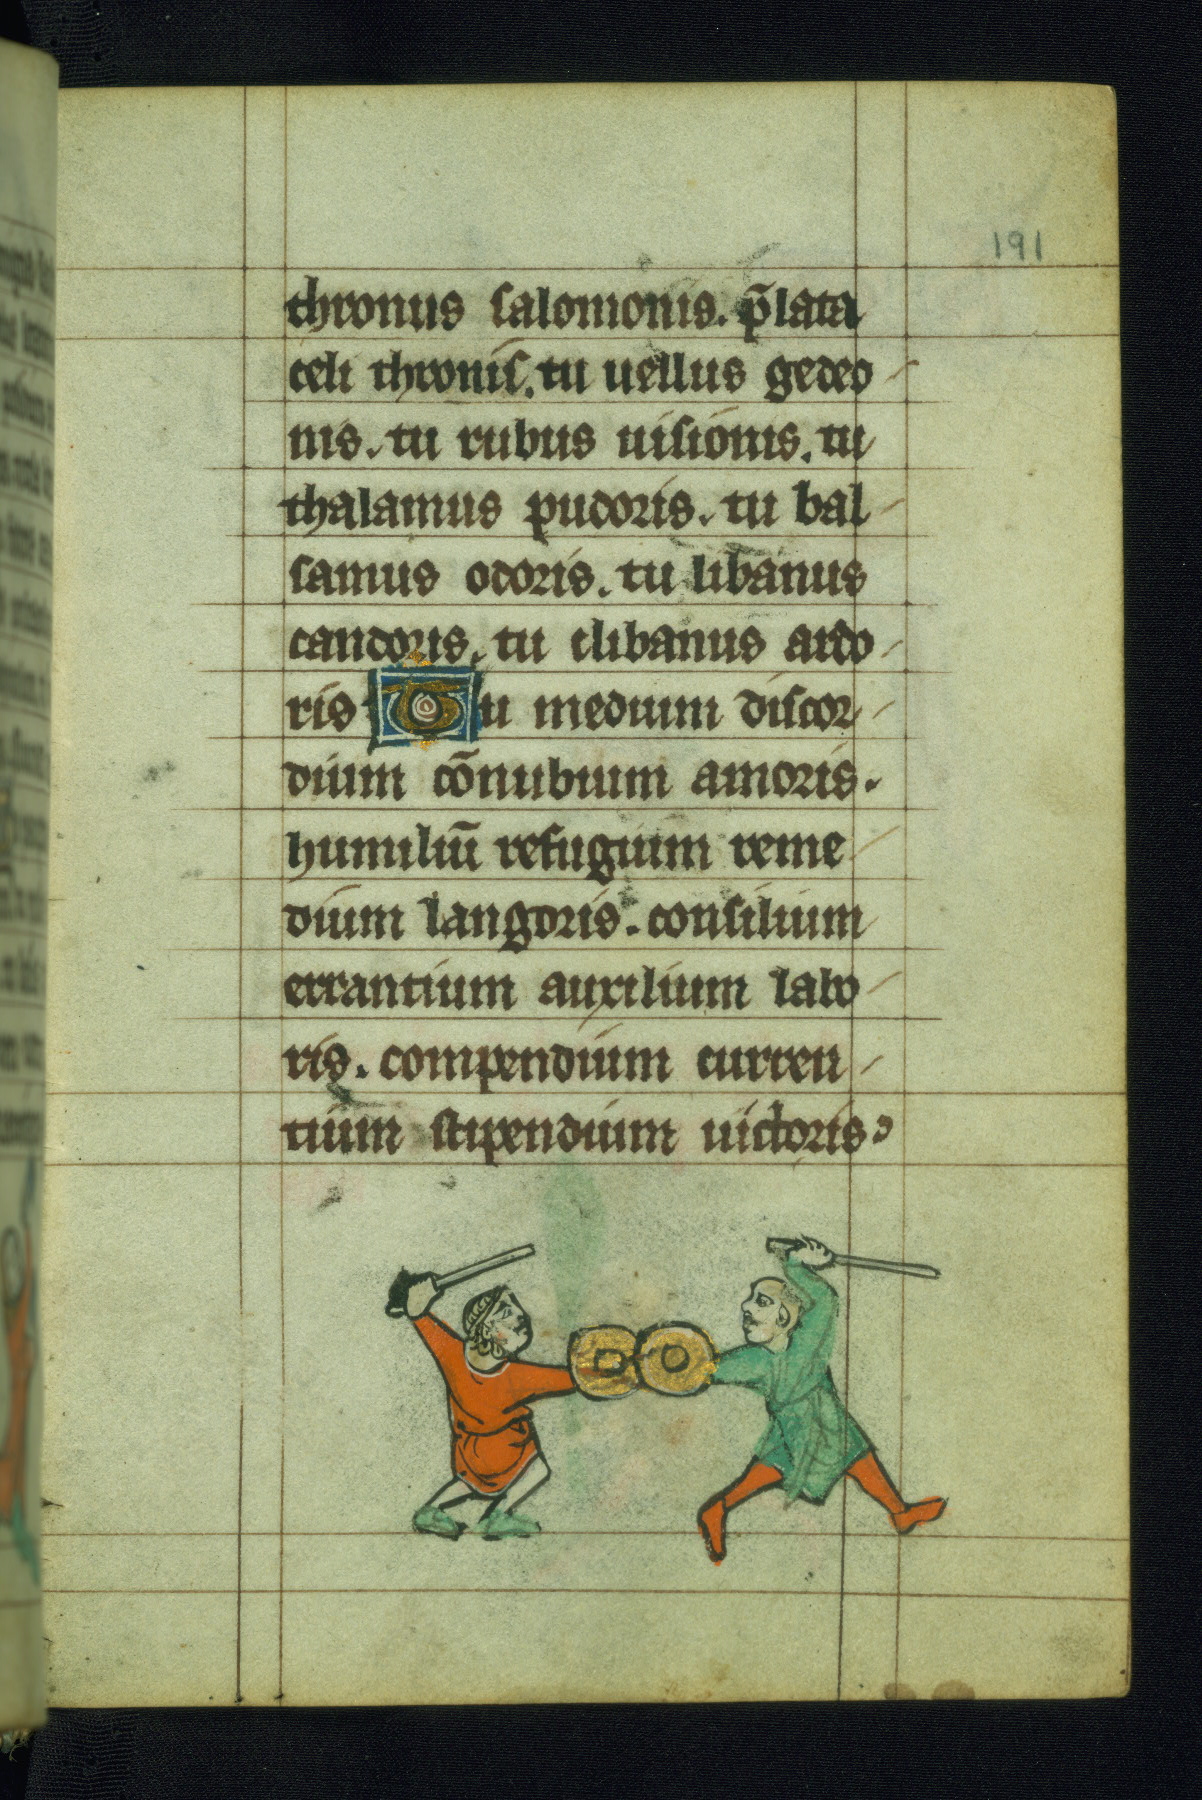 191
thronus salomonis. p̄lata
celi thronis. tu uellus gedeo
nis. tu rubus uisionis. tu
thalamus pudoris. tu bal
samus odoris. tu libanus
candoris. tu clibanus ardo
ris Tu medium discor
dium cōnubium amoris.
humiliū refugium reme
dium langoris. consilium
errantium auxilium labo
ris. compendium curren
tium stipendium uictoris